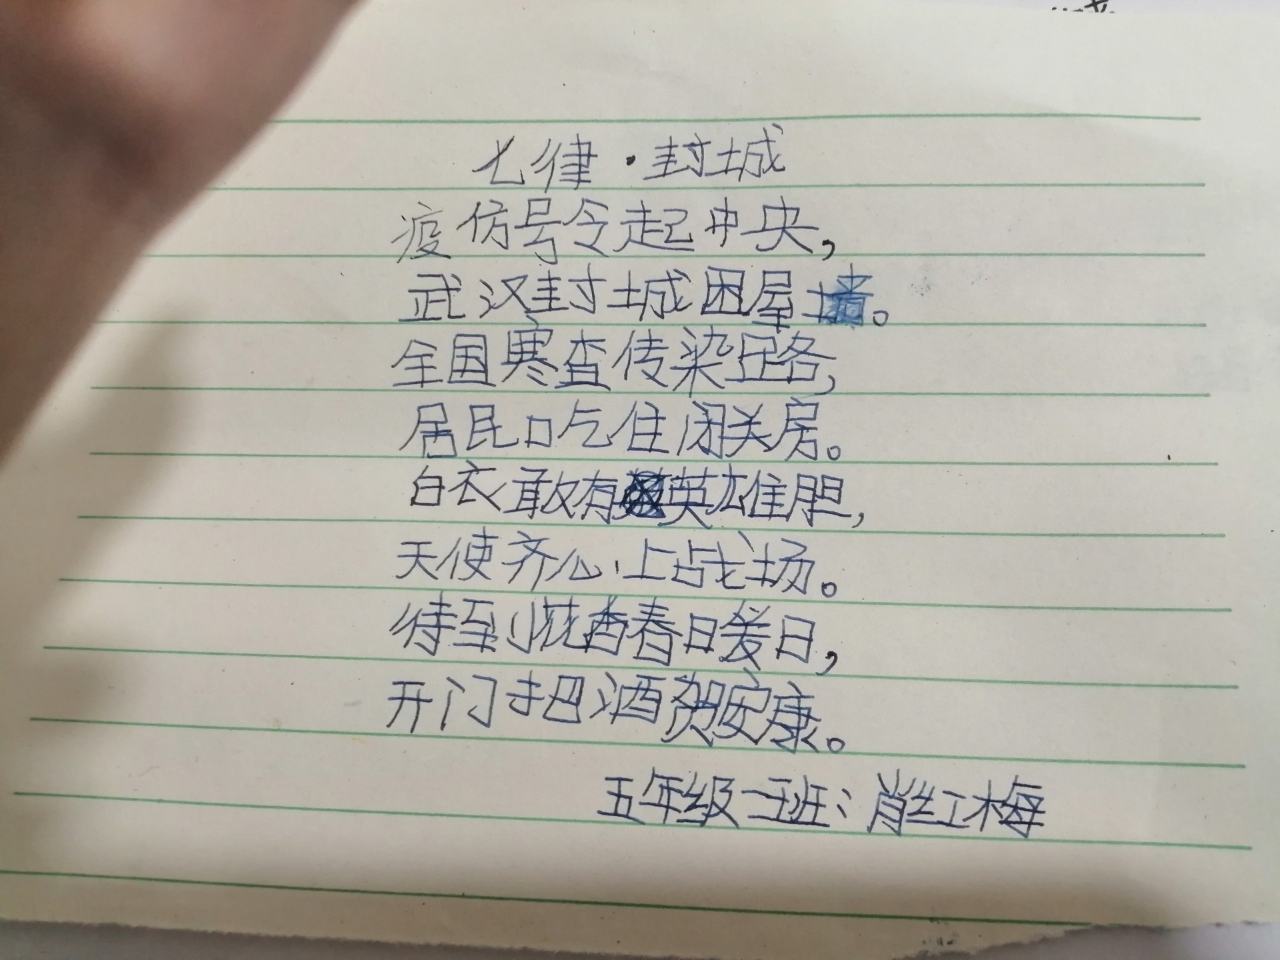 七律·封城
疫仿号令起中央，
武汉封城困屋墙。
全国寒查传染路，
居民口吃住闭关房。
白衣敢有英雄胆，
天使齐心上战场。
待到花香春日爱日，
开门把酒贺安康。
五年级一班：肖红梅